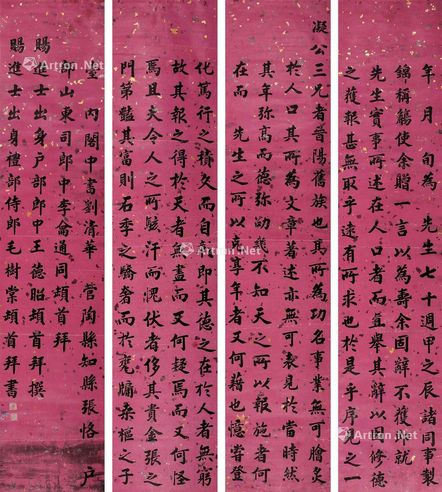 年 月 旬為 先生七十週甲之辰諸同事製
錦稱觴使余贈一言以為壽余固辭不獲就
先生實事所述在人口者而並舉其辭以因修德
之獲報甚無取乎速有所求也於是乎序之一
凝公三兄者晉陽舊族也其所為功名事業無可膾炙
於人口其所為文章著述亦無可表見於當時然
其年弥高而德弥劭或不知天之所以報施者何
在而 先生之所以克享年者又何藉也憶嘗登
化篤行之積久而自即其德之在於人者無窮
故其報之得於天者無盡而又何疑焉而又何怪
焉且夫令人之所駭汗而愧伏者侈其貴金張之
門第豔其富則石李之驕奢而於甕牖桑樞之子
臺 內閣中書劉清華 管陶縣知縣張恪 戶
部山東司郎中李侖通同頓首拜
賜進士出身戶部郎中王德昭頓首拜撰
賜進士出身禮部侍郎毛樹棠頓首拜書
Artron.Net
Artron.Net
Artron.Net
Artron.Net